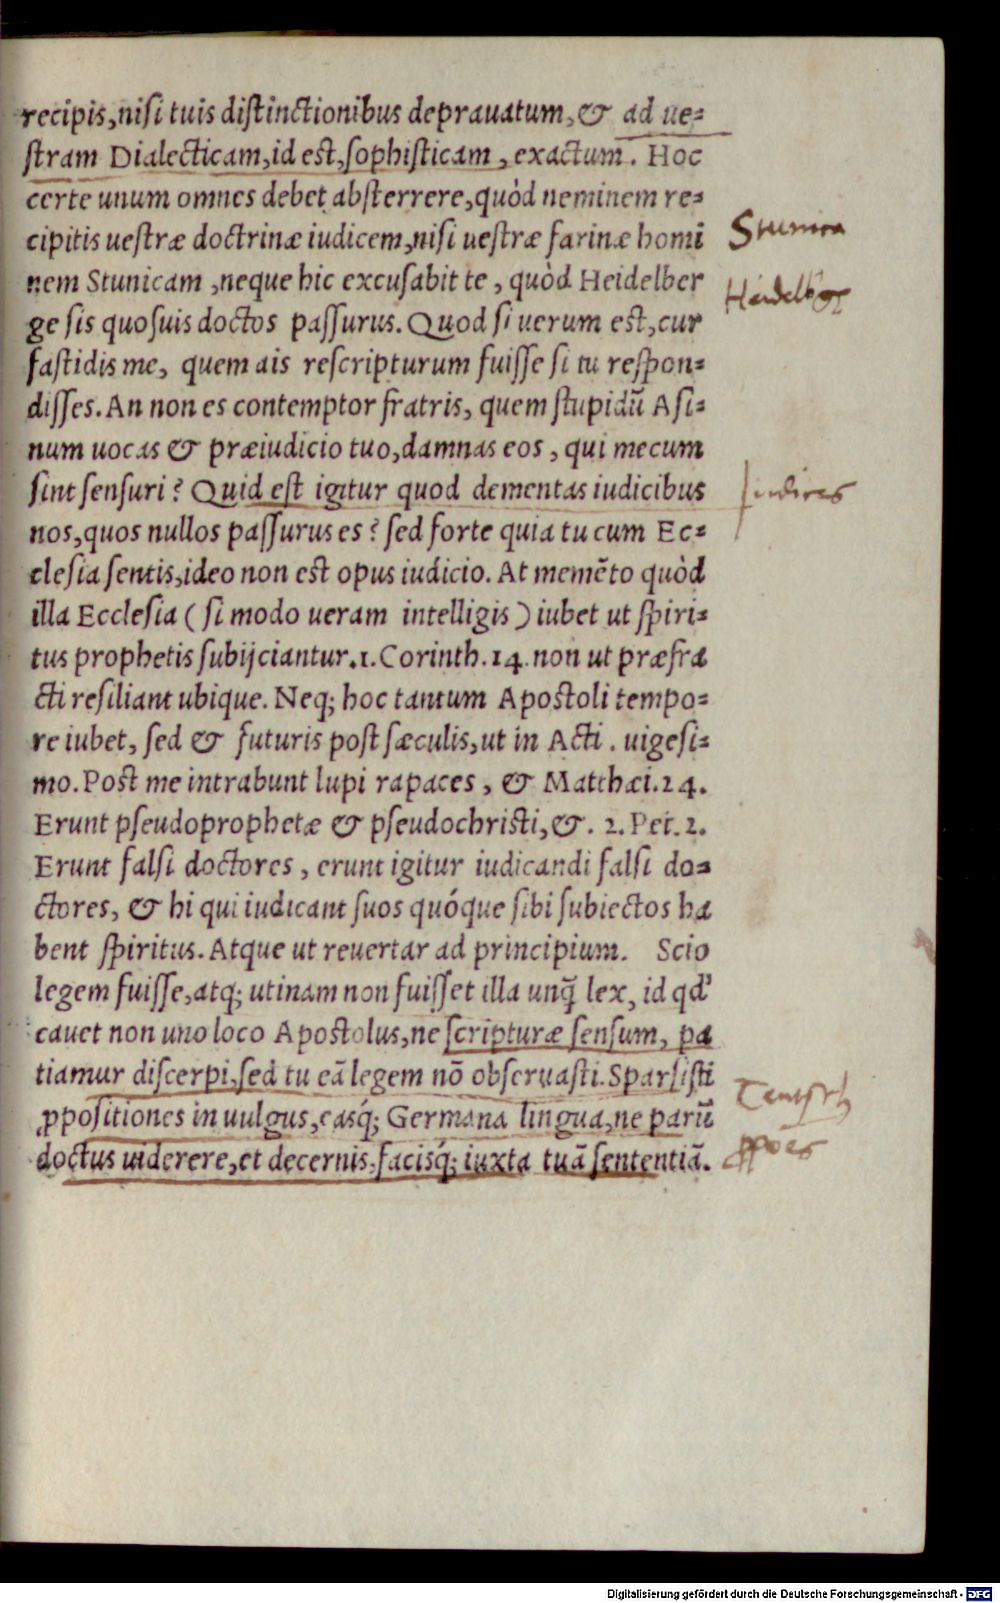 recipis,nisi tuis distinctionibus deprauatum,& ad ue=
stram Dialecticam,id est,sophisticam, exactum. Hoc
certe unum omnes debet absterrere,quòd neminem re=
cipitis uestræ doctrinæ iudicem,nisi uestræ farinæ homi
Stunica
nem Stunicam ,neque hic excusabit te , quòd Heidelber
Heidelberg
ge sis quosuis doctos passurus. Quod si uerum est,cur
fastidis me, quem ais rescripturum fuisse si tu respon=
disses. An non es contemptor fratris, quem stupidũ Asi=
num uocas & præiudicio tuo,damnas eos , qui mecum
sint sensuri? Quid est igitur quod dementas iudicibus
Iudices
nos,quos nullos passurus es? sed forte quia tu cum Ec=
clesia sentis,ideo non est opus iudicio. At memẽto quòd
illa Ecclesia ( si modo ueram intelligis ) iubet ut spiri=
tus prophetis subijciantur.1.Corinth.14.non ut præfra
cti resiliant ubique. Neq; hoc tantum Apostoli tempo=
re iubet, sed & futuris post sæculis,ut in Acti . uigesi=
mo.Post me intrabunt lupi rapaces , & Matthæi.24.
Erunt pseudoprophetæ & pseudochristi,&. 2.Pet.2.
Erunt falsi doctores , erunt igitur iudicandi falsi do=
ctores, & hi qui iudicant suos quóque sibi subiectos ha
bent spiritus.Atque ut reuertar ad principium. Scio
legem fuisse,atq; utinam non fuisset illa unq̃ lex, id qd'
cauet non uno loco Apostolus,ne scripturæ sensum, pa
tiamur discerpi,sed tu eã legem nõ obseruasti.Sparsisti
ꝓpositiones in uulgus,easq́; Germana lingua,ne parũ
doctus uiderere,et decernis,facisq́; iuxta tuã sententiã.
ꝓpoẽs
Digitalisierung gefördert durch die Deutsche Forschungsgemeinschaft - DFG